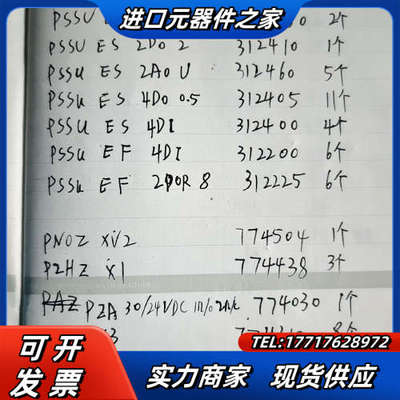 进口元器件之家
PSSU 2个
PSSU ES 2DO 2 312410 1个
PSSU ES 2AO U 312460 5个
PSSU ES 4DO 0.5 312405 11个
PSSU ES 4DI 312400 4个
PSSU EF 4DI 312200 6个
PSSU EF 2DOR 8 312225 6个
PNOZ XV2 774504 1个
P2HZ X1 774438 3个
PZA 30/24VDC 1n/o 2n/c 774030 1个
8个
可开发票
TEL:17717628972
实力商家 现货供应